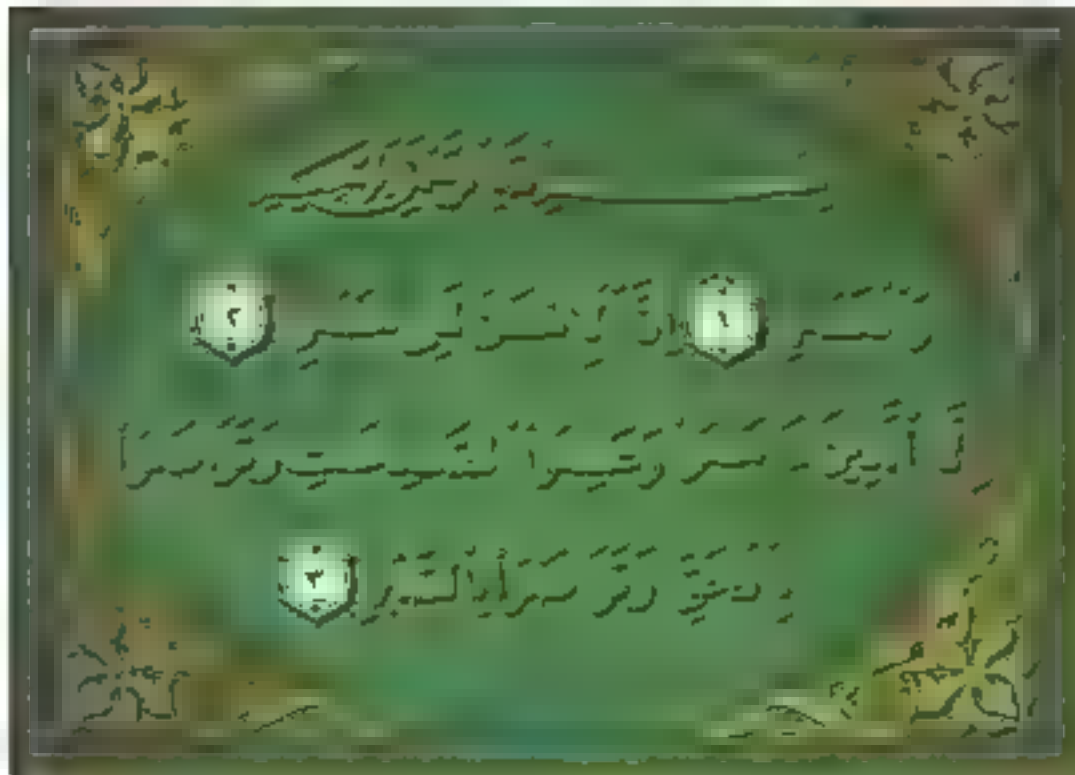 بسم الله الرحمن الرحيم
وَالْعَصْرِ ١ إِنَّ الْإِنسَانَ لَفِي خُسْرٍ ٢
إِلَّا الَّذِينَ آمَنُوا وَعَمِلُوا الصَّالِحَاتِ وَتَوَاصَوْا
بِالْحَقِّ وَتَوَاصَوْا بِالصَّبْرِ ٣